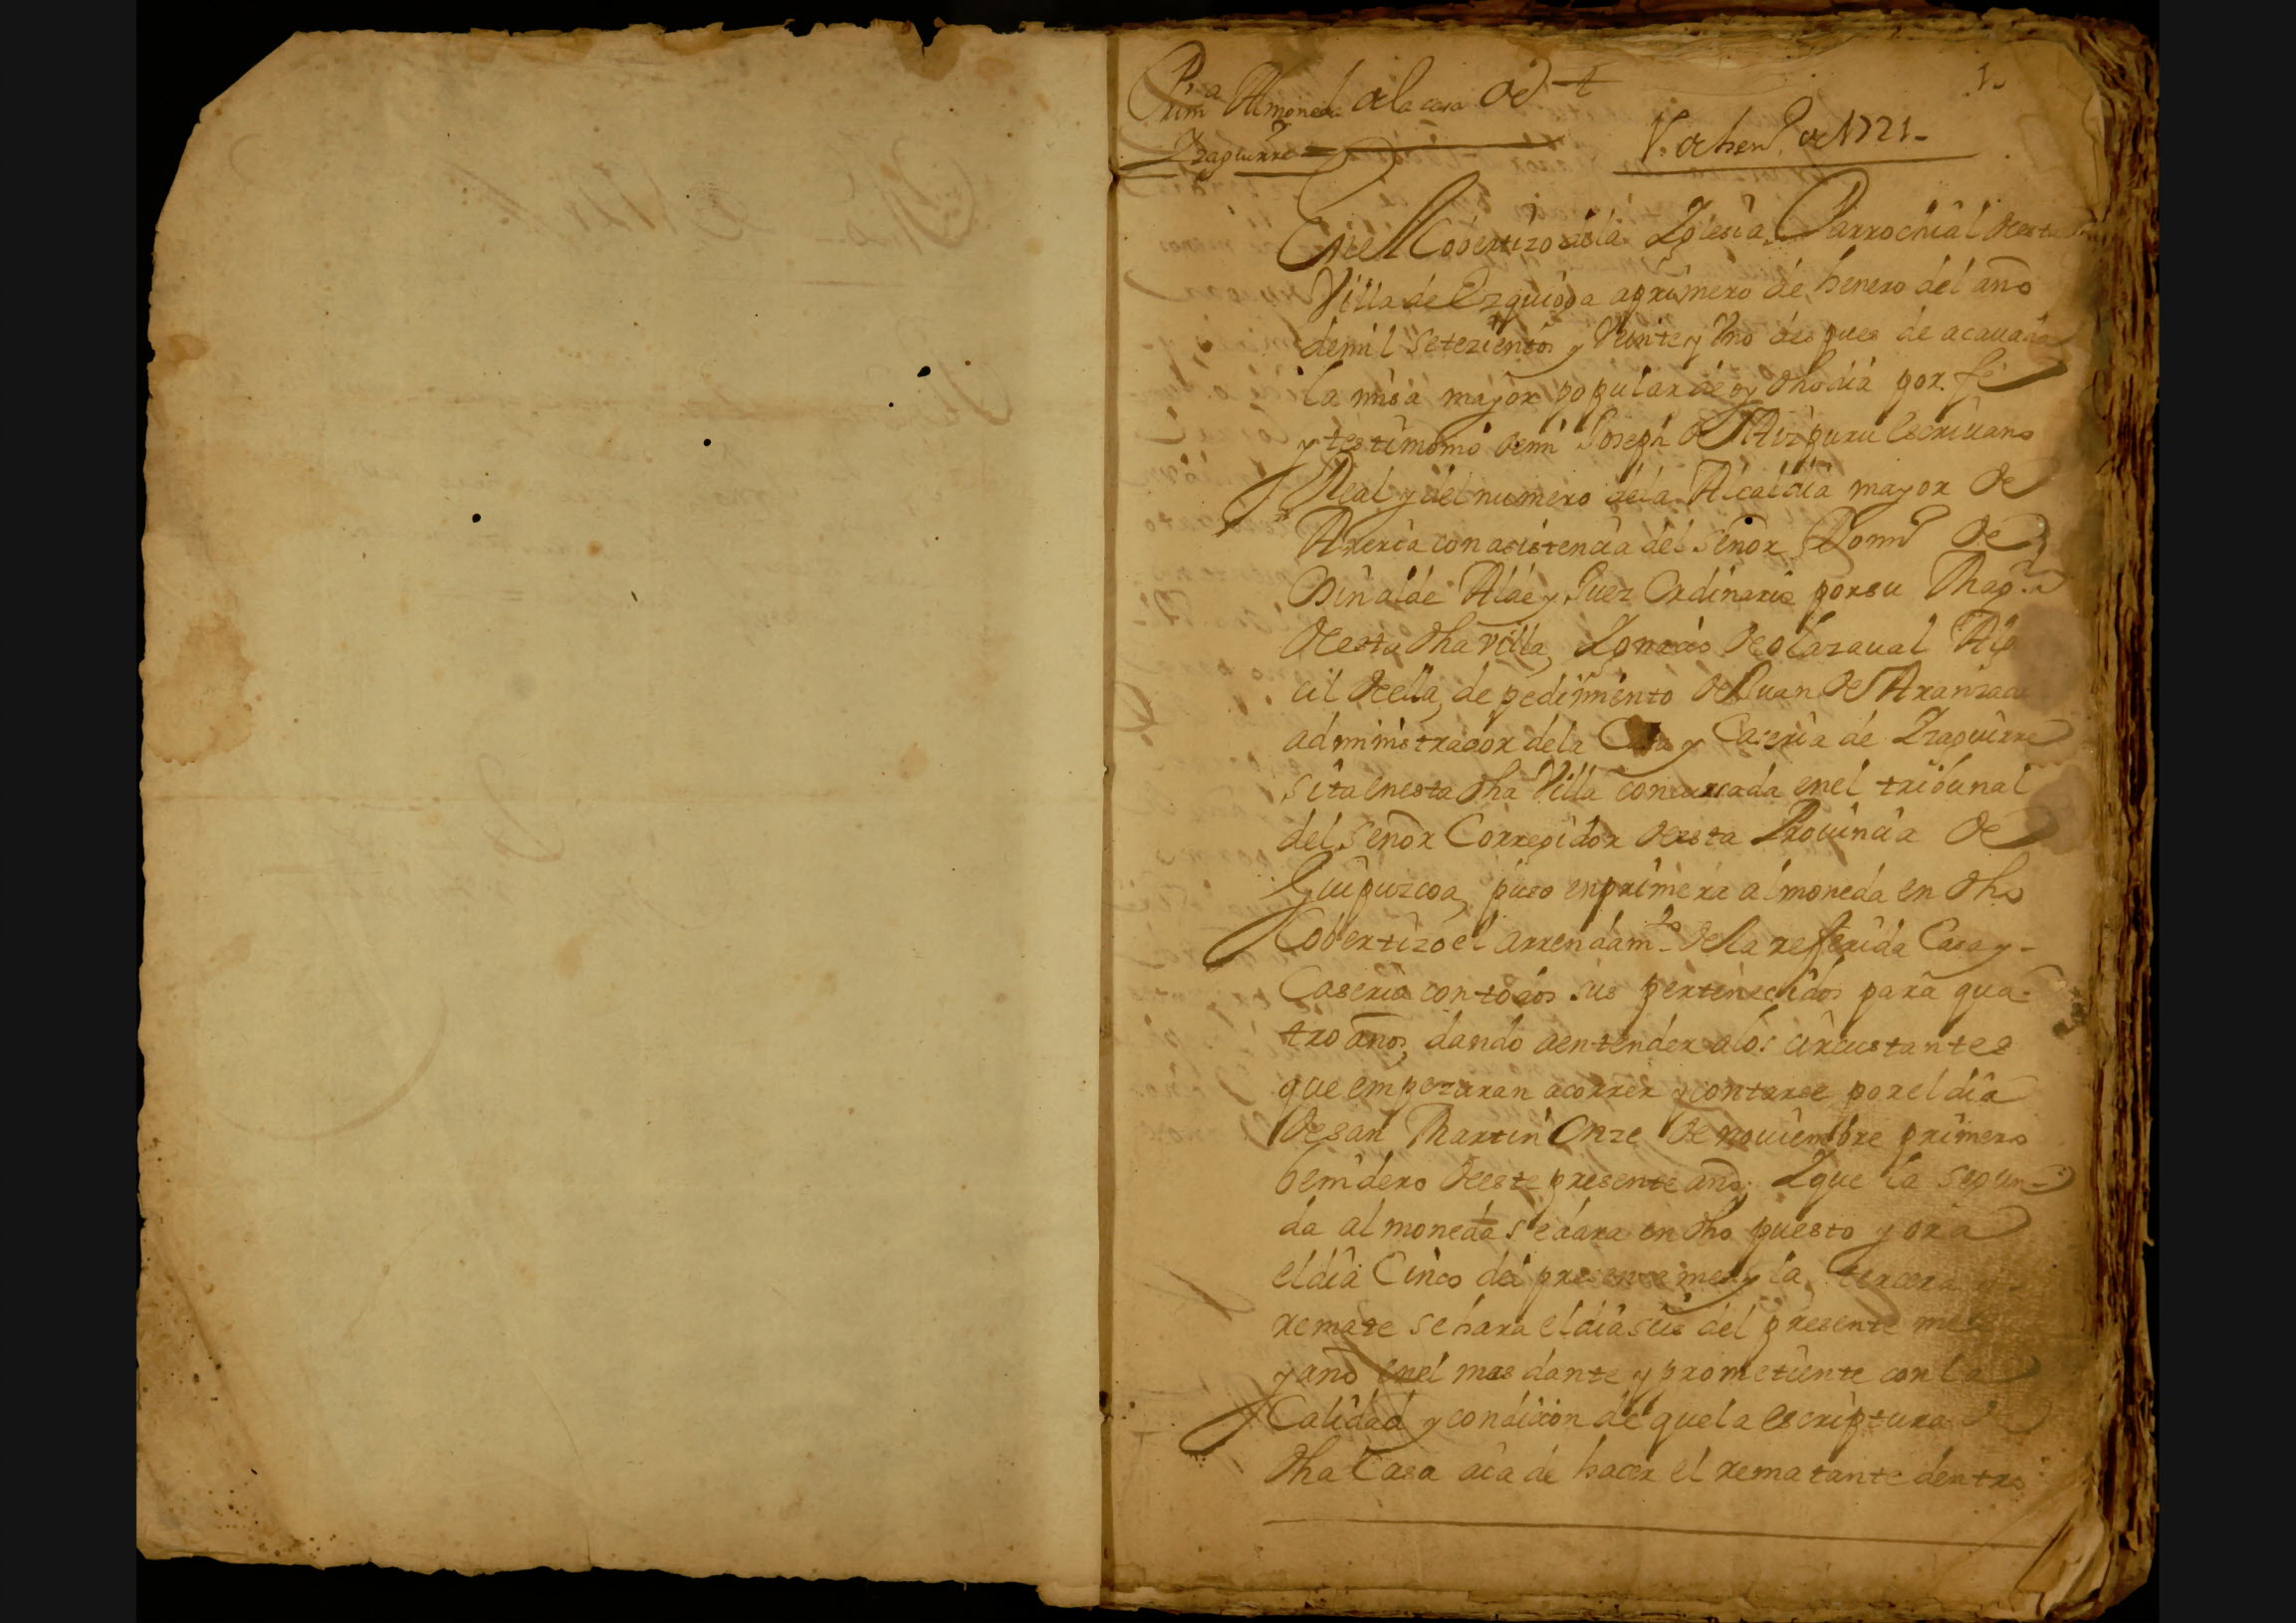 1.
Prim.a Almoneda de la casa de
Yzaguirre
1. de hen.o de 1721.
En el Cobertizo de la Yglesia Parrochial de esta
Villa de Ezquioga a primero de henero del año
de mil setezientos y Veinte y Vno despues de acauada
la misa mayor popular de oy dho dia por fé
y testimonio de mi Joseph de Aizpuru escriuano
Real y del numero de la Alcaldia mayor de
Areria con asistencia del señor Dom.o de
Alde y Juez Ordinario por su Mag.d
de esta dha villa, Ygnacio de olazaual
cil de ella, de pedimiento de Juan de
administrador de la Casa y Caseria de Yzaguirre
sita en esta dha Villa concursada en el tribunal
del señor Corregidor de esta Prouincia de
Guipuzcoa, puso en primera almoneda en dho
Cobertizo el arrendam.to de la refferida Casa y
Caseria con todos sus pertenecidos para qua-
tro años, dando a entender a los circustantes
que empezaran a correr y contarse por el dia
de san Martin Onze de nouiembre primero
benidero de este presente año, Y que la segun-
da almoneda se dara en dho puesto y ora
el dia Cinco del presente mes y la tercera
remate se hara el dia seis del presente mes
y año en el mas dante y prometiente con la
Calidad y condicion de que la escriptura de
dha Casa aia de hacer el rematante dentro